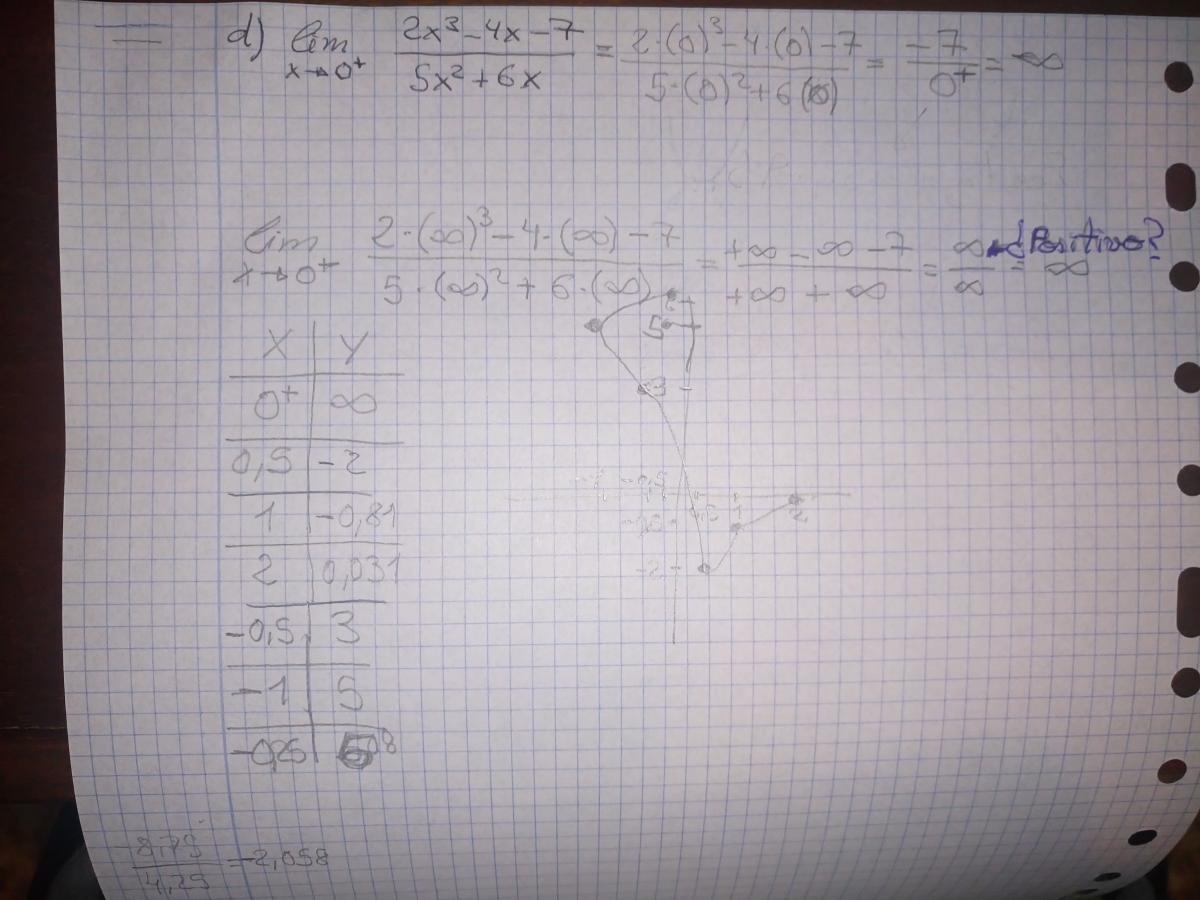 d) lim x→0⁺ (2x³-4x-7)/(5x²+6x) = (2·(0)³-4·(0)-7)/(5·(0)²+6(0)) = -7/0⁺ = -∞
lim x→0⁺ (2·(∞)³-4·(∞)-7)/(5·(∞)²+6·(∞)) = (+∞-∞-7)/(+∞+∞) = ∞/∞ = ∞ ¿Positivo?
X | Y
0⁺ | ∞
0,5 | -2
1 | -0,81
2 | 0,031
-0,5 | 3
-1 | 5
-0,25
5
3
1
2
-2
-8,75/4,25 = -2,058